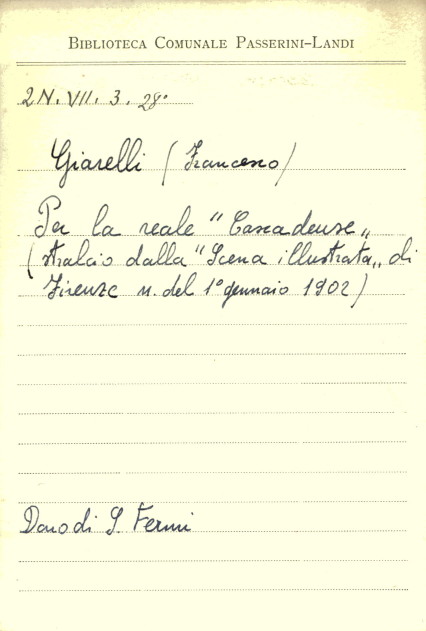 BIBLIOTECA COMUNALE PASSERINI-LANDI
2N. VII. 3. 28°
Giarelli (Francesco)
Per la reale "Cascadeuse„
(stralcio dalla "Scena illustrata„ di
Firenze n. del 1° gennaio 1902)
Dono di S. Fermi